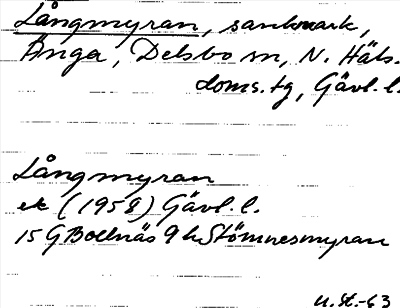 Långmyran, sankmark,
Änga, Delsbo sn, N. Häls.
doms.tg, Gävl.l.
Långmyran
ek (1958) Gävl.l.
15 G Bollnäs 9 h Stömnesmyran
U.St.-63